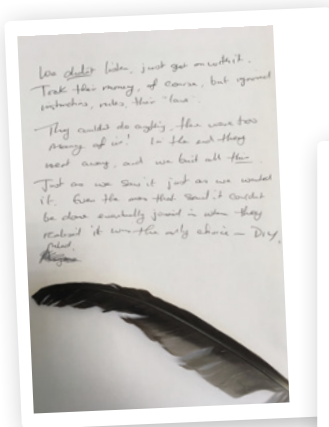 We didn't listen, just got on with it.
Took their money, of course, but ignored
instructions, rules, their "laws".
They couldn't do anything, there were too
many of us! In the end they
went away, and we built all this.
Just as we saw it just as we wanted
it. Even the ones that said it couldn't
be done eventually joined in when they
realised it was the only choice –